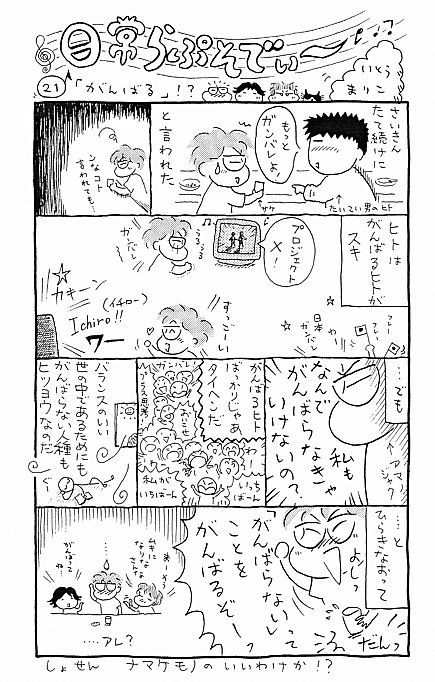 日常らぷそでぃー
いとう
まりこ
21
「がんばる」!?
さいきん
たて続けに
もっと
ガンバレよ。
と言われた
サケ
↑たいてい男のヒト
ンなコト
言われても…
ヒトは
がんばるヒトが
スキ
プロジェクト
X!
うるうる
ガンバレ
フレー
フレー
日本
ガンバレ
すっごーい
☆
カキーン
(イチロー)
Ichiro!!
ワー
…でも
↑アマノジャク
なんで
私も
がんばらなきゃ
いけないの?
がんばるヒト
ばっかりじゃあ
タイヘンだ
わーん
いっちばーん
ガンバレー
プラス思考
私が
いちばーん
バランスのいい
世の中であるためにも
がんばらない人種も
ヒツヨウなのだ
ぐー
…と
ひらきなおって
よしっ
「がんばらない」って
ことを
がんばるぞーっ
だんっ
ムキに
なりなさんな
さんな
がんばって
ね…
…アレ?
しょせん ナマケモノのいいわけか!?